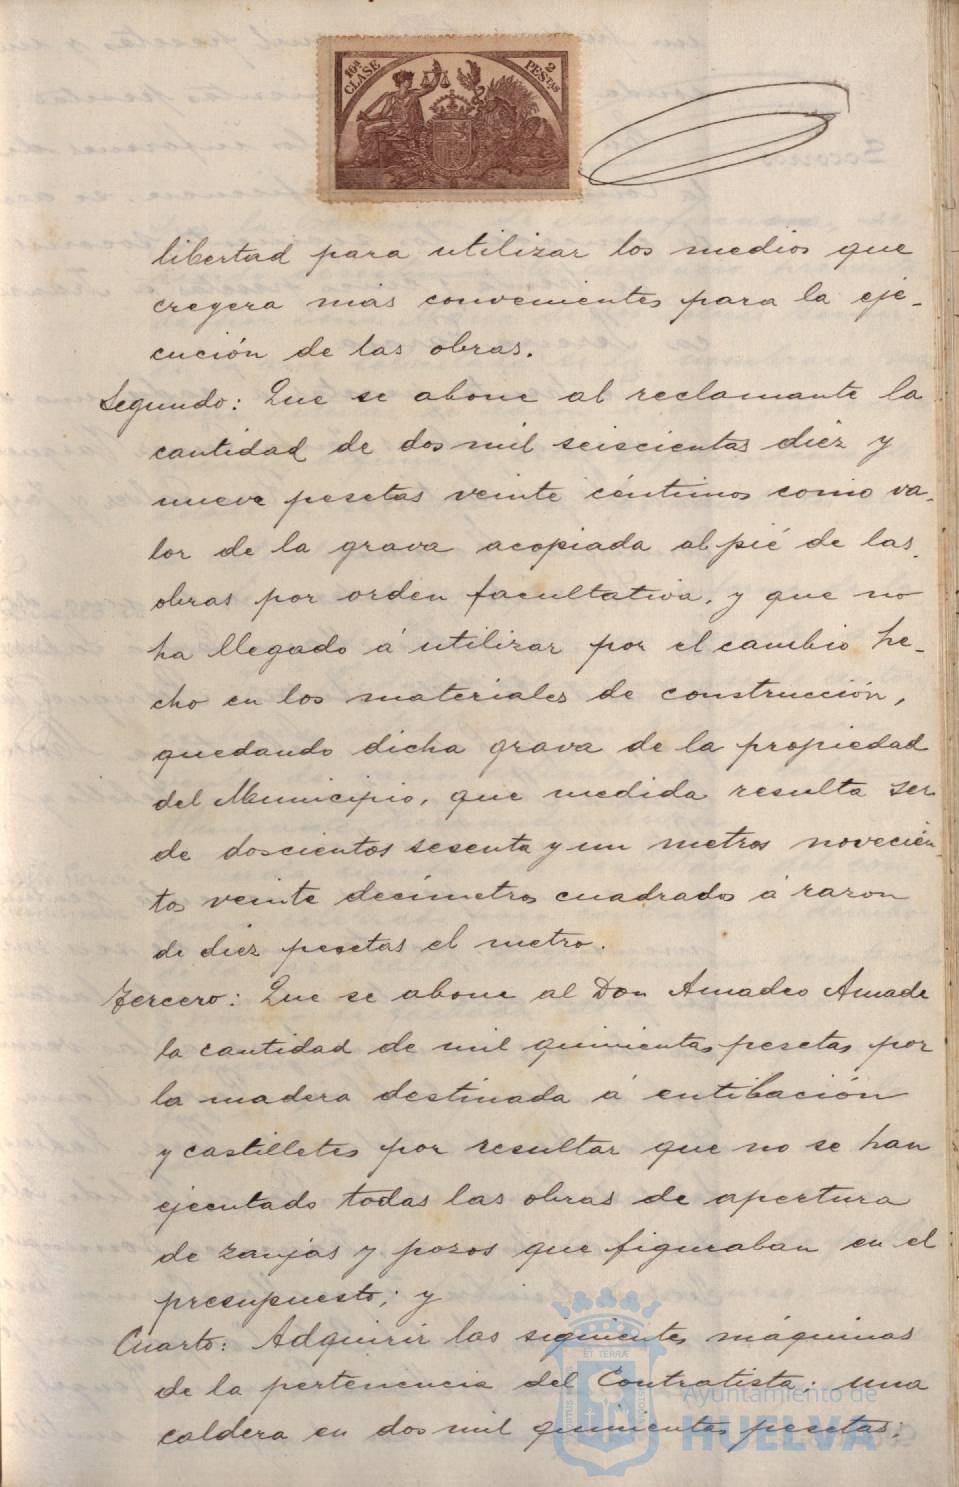 16ª CLASE
2 PESTAS
libertad para utilizar los medios que
creyera mas convenientes para la eje-
cución de las obras.
Segundo: Que se abone al reclamante la
cantidad de dos mil seiscientas diez y
nueve pesetas veinte céntimos como va-
lor de la grava acopiada al pié de las
obras por orden facultativa, y que no
ha llegado á utilizar por el cambio he-
cho en los materiales de construcción,
quedando dicha grava de la propiedad
del Municipio, que medida resulta ser
de doscientos sesenta y un metros novecien-
tos veinte decímetros cuadrados á razon
de diez pesetas el metro.
Tercero: Que se abone al Don Amadeo Amade
la cantidad de mil quinientas pesetas por
la madera destinada á entibación
y castilletes por resultar que no se han
ejecutado todas las obras de apertura
de zanjas y pozos que figuraban en el
presupuesto; y
Cuarto: Adquirir las siguientes máquinas
de la pertenencia del Contratista: una
caldera en dos mil quinientas pesetas;
ET TERRÆ
Ayuntamiento de
HUELVA